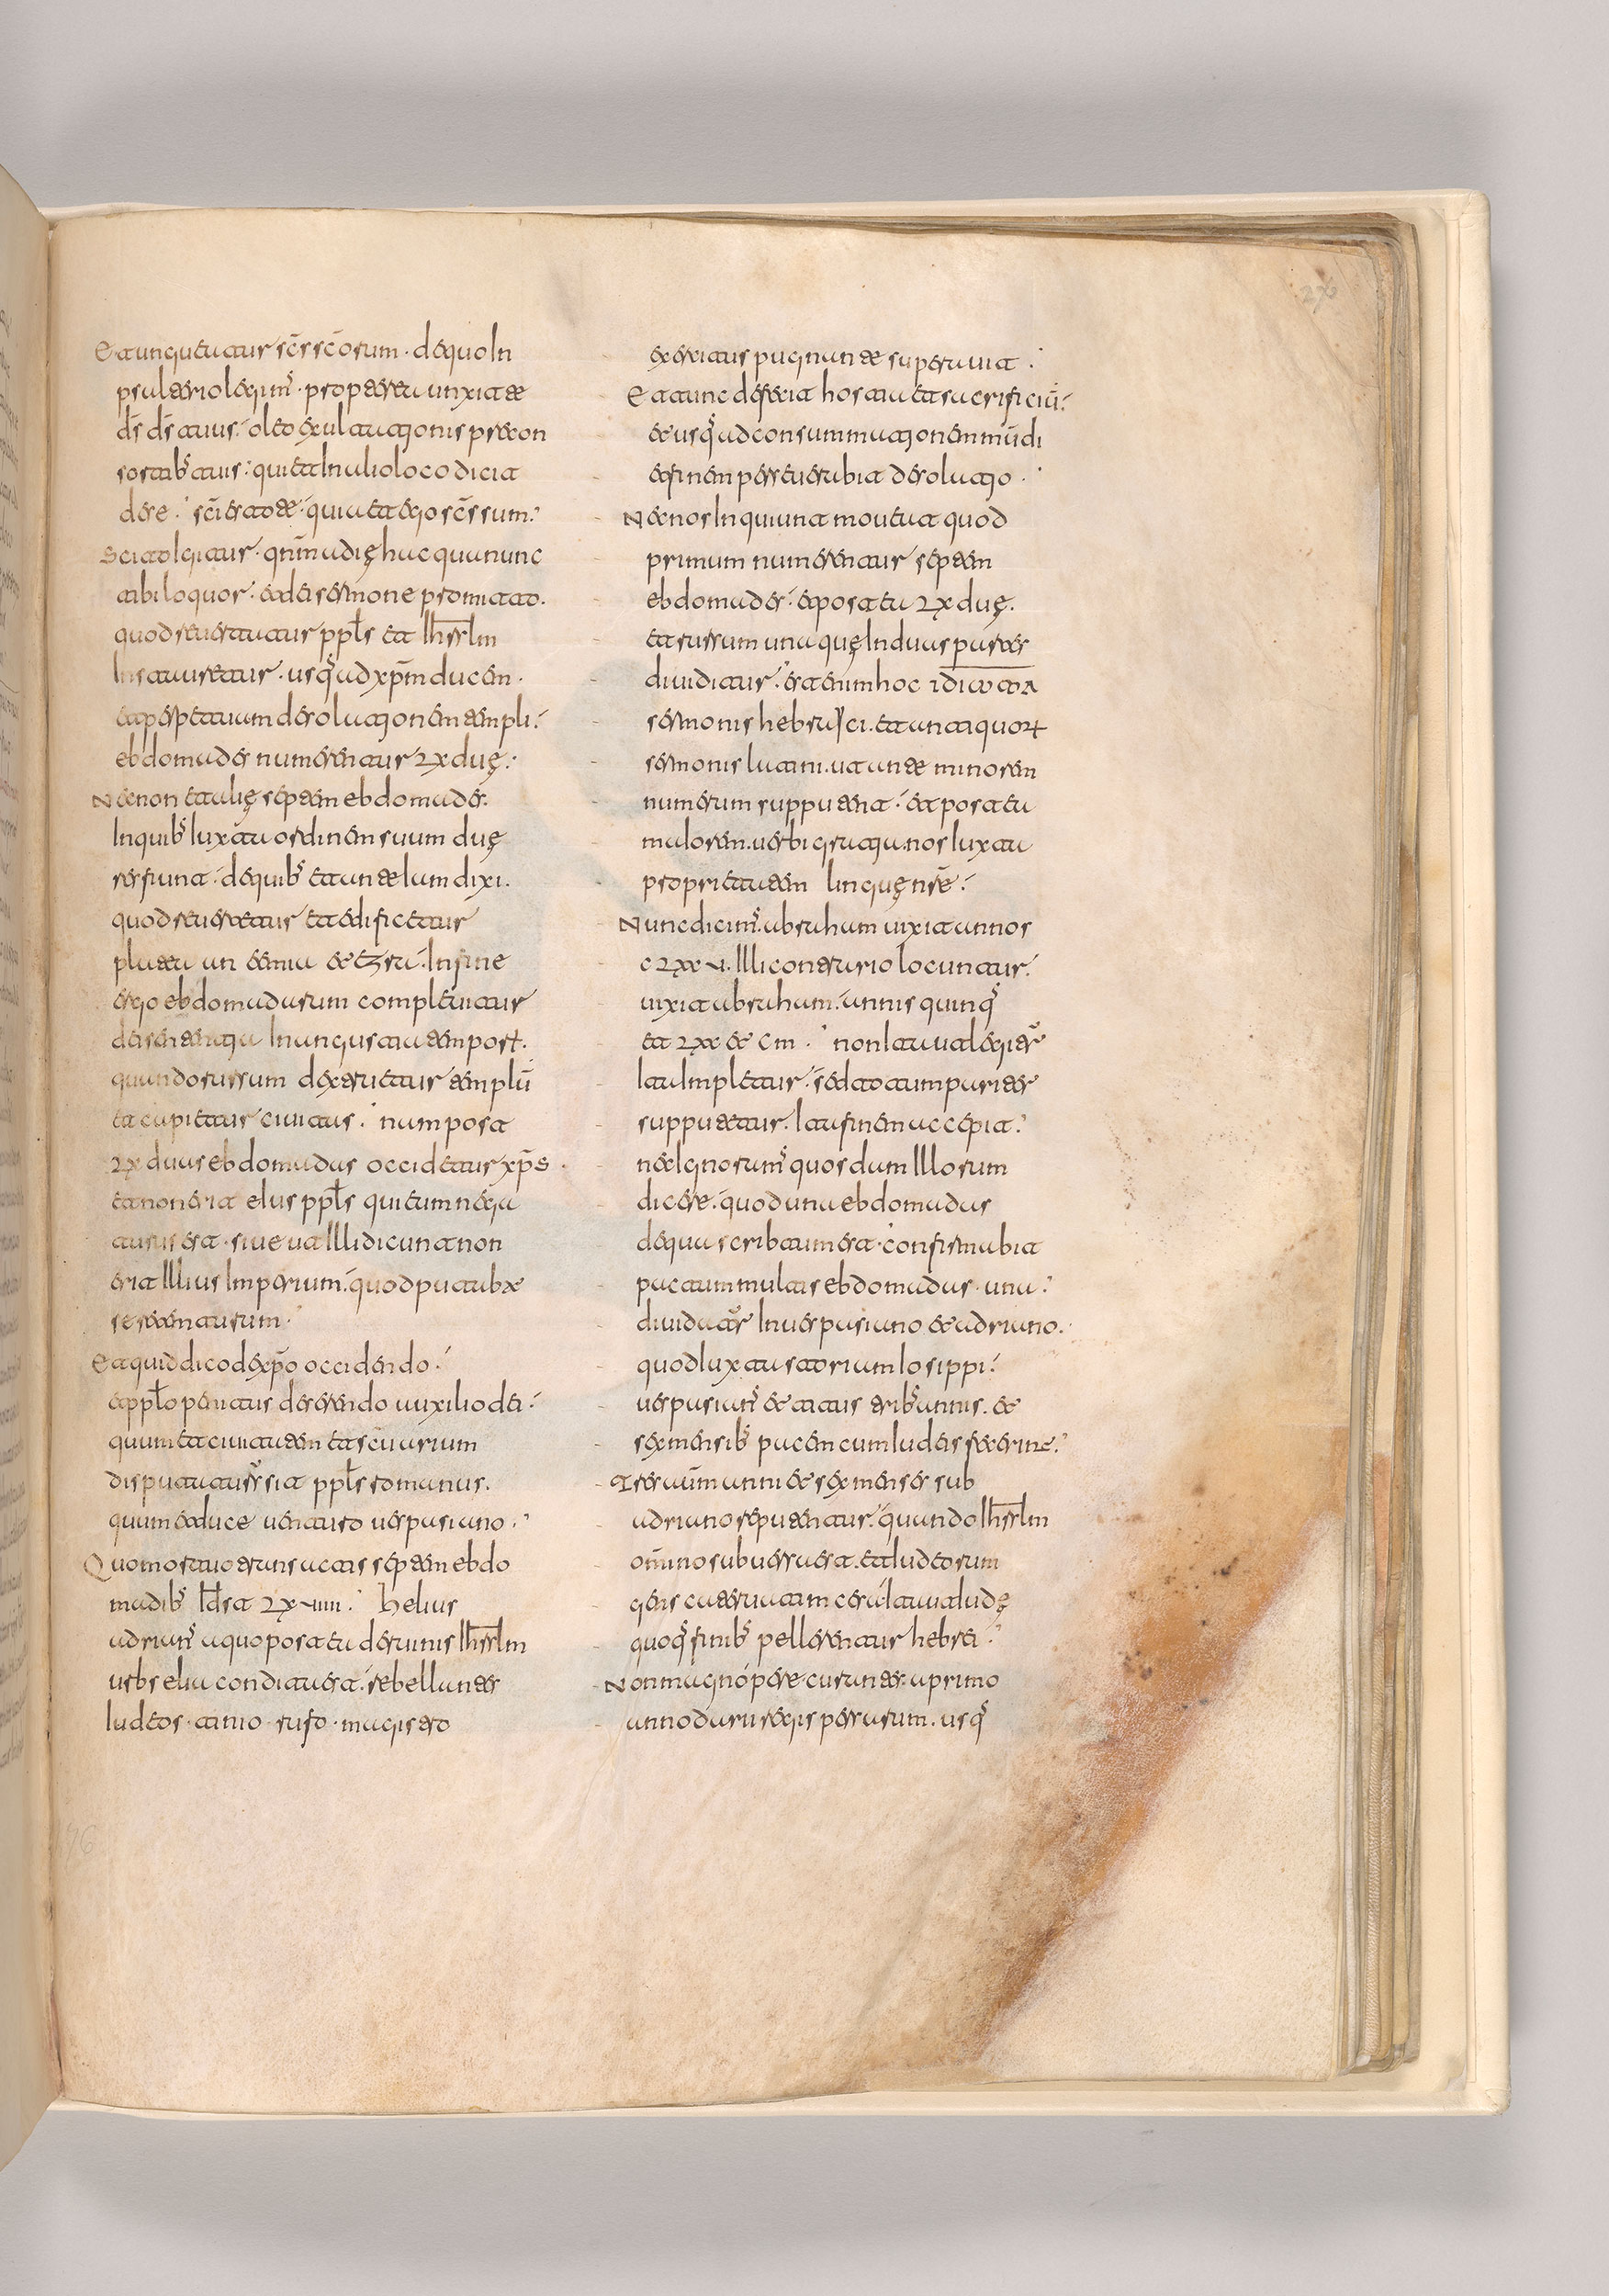 Et unguetur scs scorum · de quo in
psalterio legimus · propterea unxit te
ds ds tuus · oleo exultationis pre con
sortibs tuis · qui et in alio loco dicit
de se · sci estote · quia et ego scs sum ·
Scito igitur · qnm a die hac qua nunc
tibi loquor · et dei sermone promitto ·
quod reuertatur ppls et ihrslm
instauretur · usq ad xpm ducem ·
et perpetuum desolationem templi ·
ebdomades numerentur lx due ·
Nec non et alie septem ebdomades ·
In quibs iuxta ordinem suum due
res fiunt · de quibs et ante iam dixi ·
quod reuertetur et edificetur
platea an eemia et Ezra · In fine
ergo ebdomadarum complebitur
dei sententia in angustia tempor ·
quando rursum dextruetur templu
et capietur ciuitas · nam post
lx duas ebdomadas occidetur xps ·
et non erit eius ppls qui eum nega
turus est · siue ut illi dicunt non
erit illius imperium · quod putabat
se retenturum ·
Et quid dico de xpo occidendo ·
et pplo penitus deserendo auxilio dei ·
quum et ciuitatem et scuarium
disputaturs sit ppls romanus ·
quum et duce uenturo uespasiano ·
Quo mortuo transactis septem ebdo
madibs idst lx uiiii · helius
adrianus a quo postea de ruinis ihrslm
urbs elia condita est · rebellantes
iudeos · timo rufo · magistro
exercitus pugnante superauit ·
Et tunc defecit hostia et sacrificiu ·
et usq ad consummationem mudi
et finem perseuerabit desolatio ·
Nec nos inquiunt moueat quod
primum numerentur septem
ebdomades · et postea lx due ·
et rursum una que in duas partes
diuiditur · est enim hoc idiωτωα
sermonis hebrayci · et antiquor
sermonis latini · ut ante minorem
numerum supputent · et postea
maiorem · uerbi gratia · nos iuxta
proprietatem lingue nre ·
Nunc dicims · abraham uixit annos
clxxu · Illi contrario locuntur ·
uixit abraham · annis quinq
et lxx et cm · non ita ut legitr
ita impletur · sed totum pariter
supputatur · ita finem accepit ·
nec ignorams quosdam illorum
dicere · quod una ebdomadas
de qua scribtum est · confirmabit
pactum multis ebdomadas · una ·
diuidatr in uespasiano et adriano ·
quod iuxta storiam iosippi ·
uespasians et titus tribs annis · et
sex mensibs pacem cum iudeis fecerint ·
Tres autm anni et sex menses sub
adriano reputentur · quando ihrslm
omnino subuersa est · et iudeorum
gens cateruatim cesa · ita ut iude
quoq finibs pellerentur hebrei ·
Non magnopere curantes · a primo
anno darii regis persarum · usq